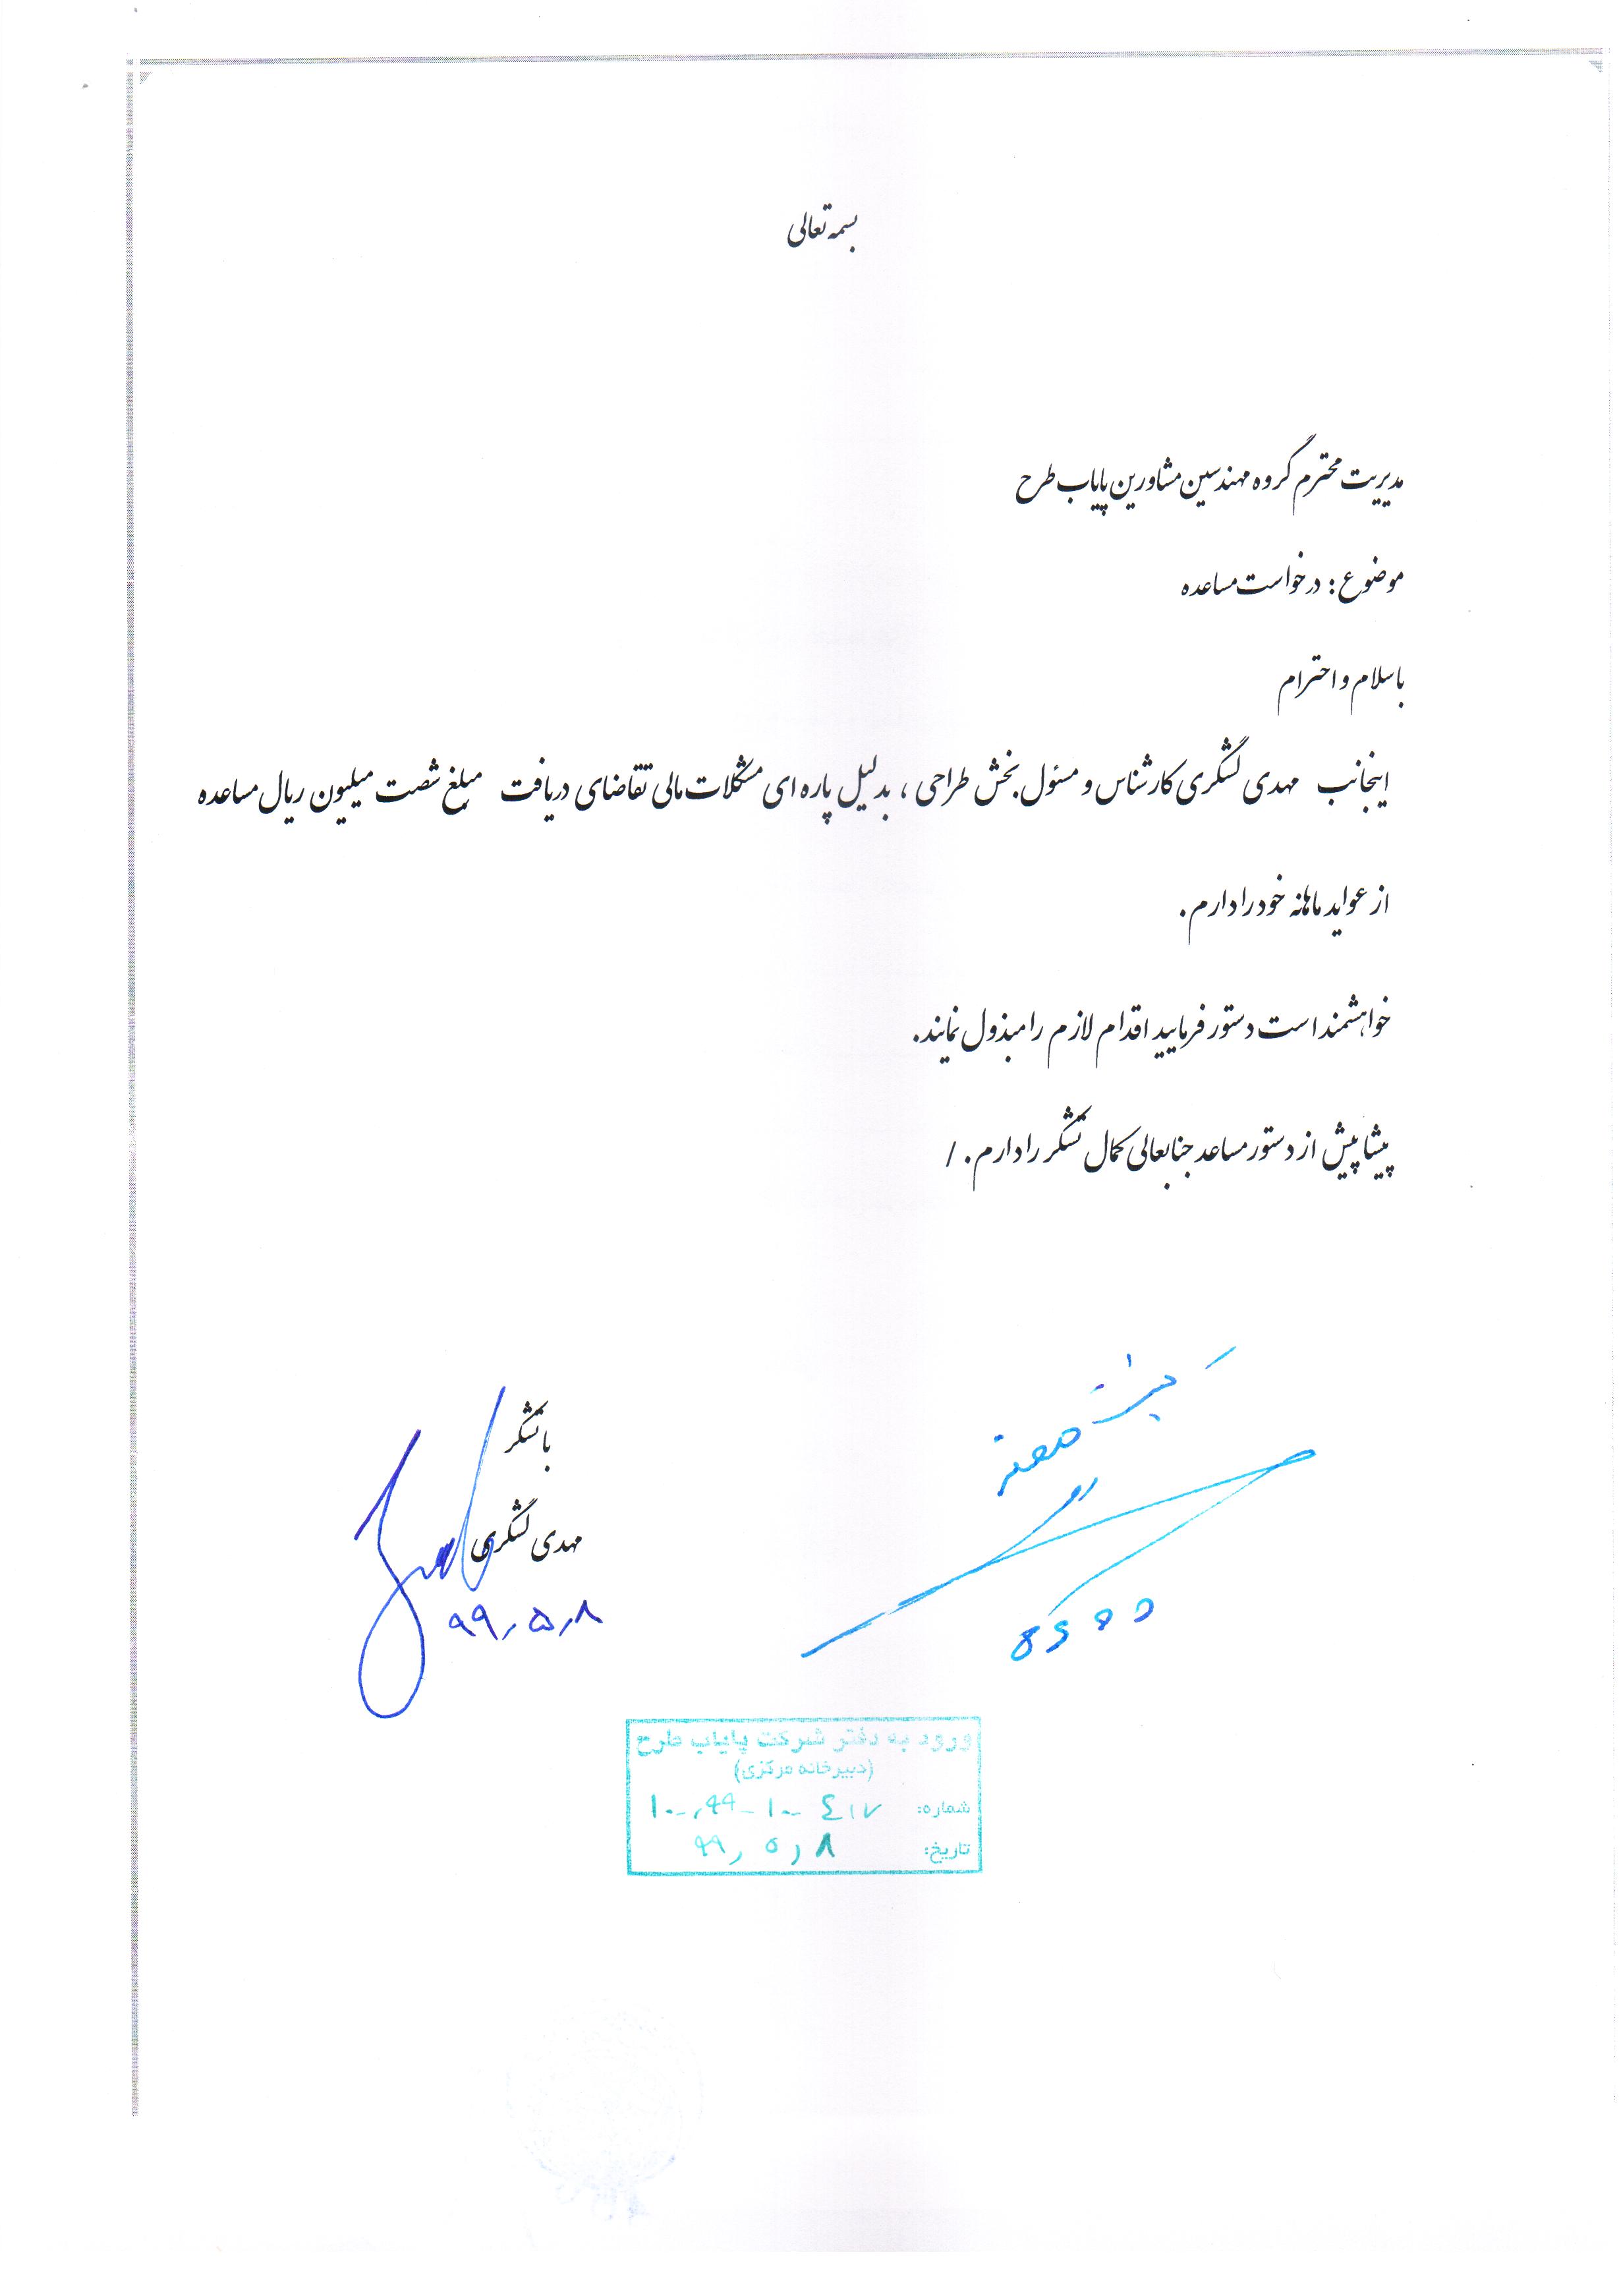 بسمه تعالی
مدیریت محترم گروه مهندسین مشاورین پایاب طرح
موضوع : درخواست مساعده
با سلام و احترام
اینجانب مهدی لشگری کارشناس و مسئول بخش طراحی ، بدلیل پاره ای مشکلات مالی تقاضای دریافت مبلغ شصت میلیون ریال مساعده
از عواید ماهانه خود را دارم .
خواهشمند است دستور فرمایید اقدام لازم را مبذول نمایند.
پیشاپیش از دستور مساعد جنابعالی کمال تشکر را دارم . /
با تشکر
مهدی لشگری
۹۹,۵,۸
ورود به دفتر شرکت پایاب طرح
(دبیرخانه مرکزی)
شماره: ۱۰۰,۹۹-۱۰-٤۱۷
تاریخ: ۹۹,۵,۸